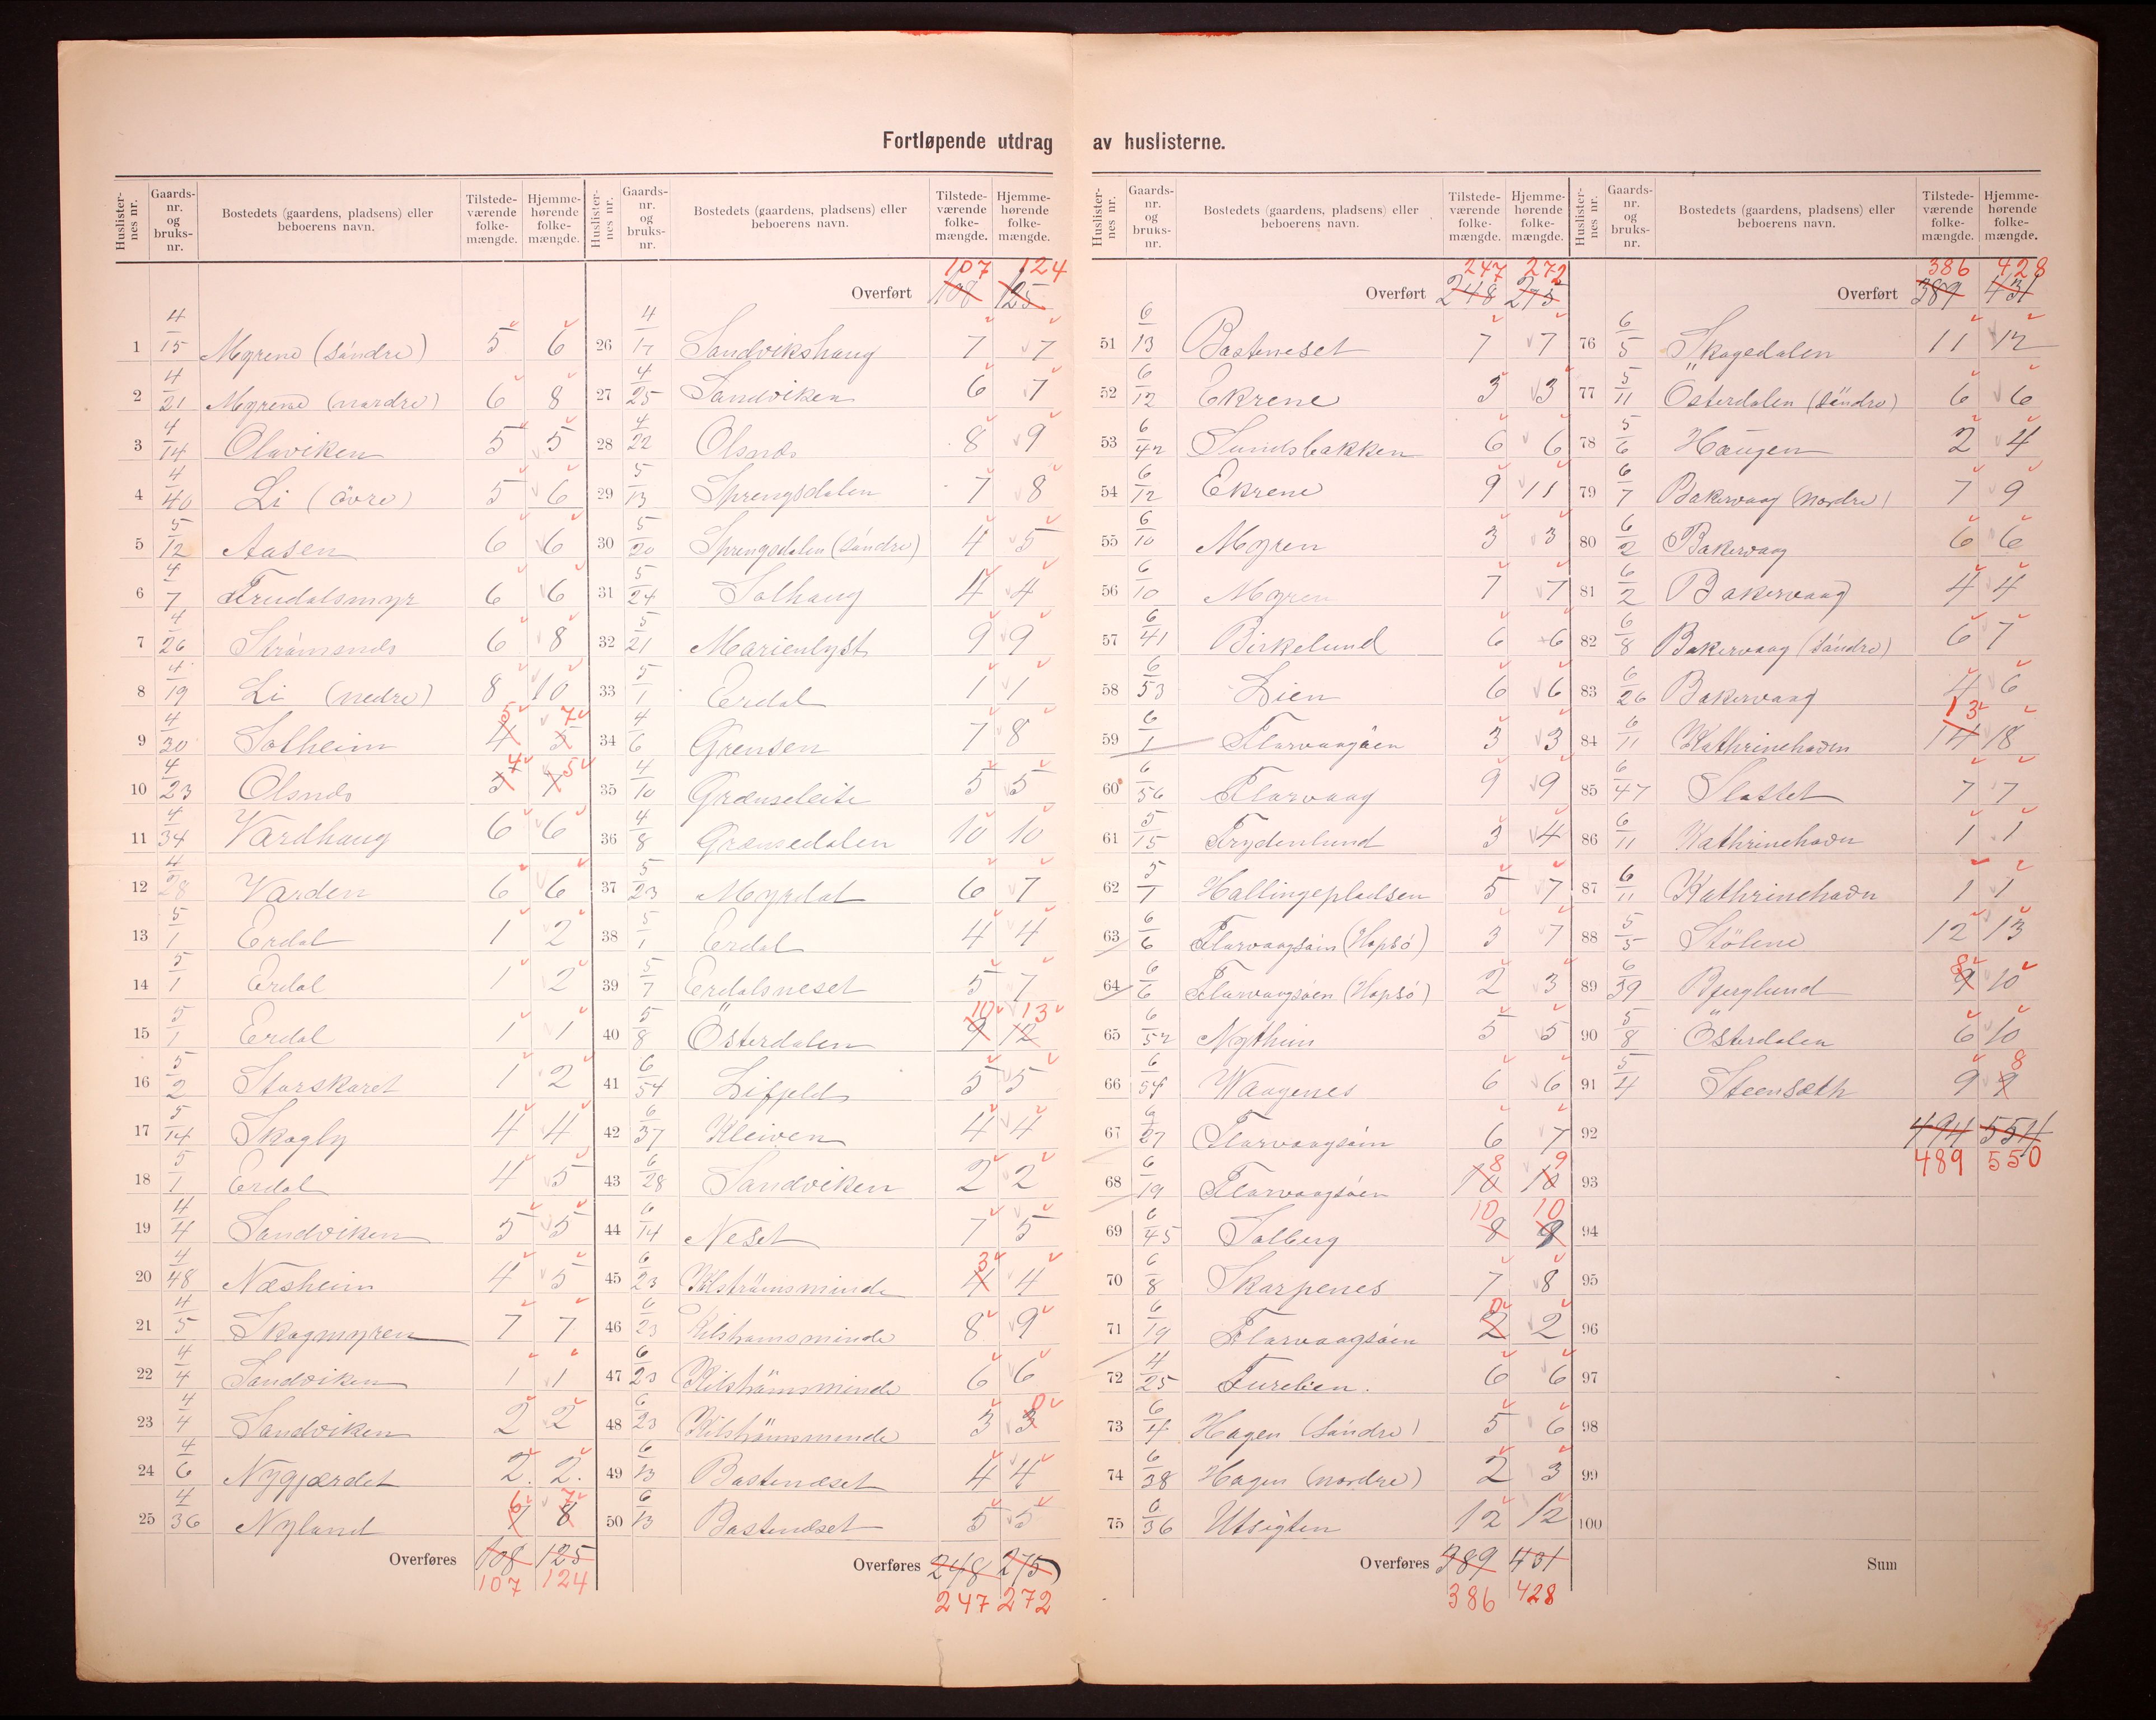 Fortløpende utdrag av huslisterne.
Huslisternes nr. Gaards-nr. og bruks-nr. Bostedets (gaardens, pladsens) eller beboerens navn. Tilstede-værende folke-mængde. Hjemme-hørende folke-mængde.
1 4/15 Myrene (söndre) 5 6
2 4/21 Myrene (nordre) 6 8
3 4/14 Olaviken 5 5
4 4/40 Li (övre) 5 6
5 5/12 Aasen 6 6
6 4/7 Trudalsmyr 6 6
7 4/26 Strömsnes 6 8
8 4/19 Li (nedre) 8 10
9 4/30 Solheim 4 5 5 7
10 4/23 Olsnes 4 7 5
11 4/34 Vardhaug 6 6
12 4/28 Varden 6 6
13 5/1 Erdal 1 2
14 5/1 Erdal 1 2
15 5/1 Erdal 1 1
16 5/2 Storskaret 1 2
17 5/14 Skogly 4 4
18 5/1 Erdal 4 5
19 4/4 Sandviken 5 5
20 4/48 Næsheim 4 5
21 4/5 Skogmyren 7 7
22 4/4 Sandviken 1 1
23 4/4 Sandviken 2 2
24 4/6 Nygjærdet 2. 2.
25 4/36 Nyland 7 6 8 7
Overføres 108 125
107 124
Huslisternes nr. Gaards-nr. og bruks-nr. Bostedets (gaardens, pladsens) eller beboerens navn. Tilstede-værende folke-mængde. Hjemme-hørende folke-mængde.
107 124
Overført 108 125
26 4/17 Sandvikshaug 7 7
27 4/25 Sandviken 6 7
28 4/22 Olsnes 8 9
29 5/13 Sprengsdalen 7 8
30 5/20 Sprengsdalen (söndre) 4 5
31 5/24 Solhaug 4 4
32 5/21 Marienlyst 9 9
33 5/1 Erdal 1 1
34 4/6 Grensen 7 8
35 4/10 Grænseleite 5 5
36 4/8 Grænsedalen 10 10
37 5/23 Myrdal 6 7
38 5/1 Erdal 4 4
39 5/7 Erdalsneset 5 7
40 5/8 Österdalen 9 10 12 13
41 6/54 Lifjeld 5 5
42 6/37 Kleiven 4 4
43 6/28 Sandviken 2 2
44 6/14 Neset 7 5
45 6/23 Kilströmsminde 4 3 4
46 6/23 Kilströmsminde 8 9
47 6/23 Kilströmsminde 6 6
48 6/23 Kilströmsminde 3 3 0
49 6/13 Bastenæset 4 4
50 6/13 Bastenæset 5 5
Overføres 248 275
247 272
Huslisternes nr. Gaards-nr. og bruks-nr. Bostedets (gaardens, pladsens) eller beboerens navn. Tilstede-værende folke-mængde. Hjemme-hørende folke-mængde.
247 272
Overført 248 275
51 6/13 Basteneset 7 7
52 6/12 Ekrene 3 3
53 6/42 Sundsbakken 6 6
54 6/12 Ekrene 9 11
55 6/10 Myren 3 3
56 6/10 Myren 7 7
57 6/41 Birkelund 6 6
58 6/53 Lien 6 6
59 6/1 Florvaagöen 3 3
60 6/56 Florvaag 9 9
61 5/15 Frydenlund 3 4
62 5/1 Hallingepladsen 5 7
63 6/6 Florvaagöen (Hopsö) 3 7
64 6/6 Florvaagsöen (Hopsö) 2 3
65 6/52 Nytheim 5 5
66 6/54 Waagenes 6 6
67 6/27 Florvaagsöen 6 7
68 6/19 Florvaagsöen 10 8 10 9
69 6/45 Solberg 8 10 9 10
70 6/8 Skarpenes 7 8
71 6/19 Florvaagsöen 2 0 2
72 4/25 Furelien. 6 6
73 6/4 Hagen (söndre) 5 6
74 6/38 Hagen (nordre) 2 3
75 6/36 Utsigten 12 12
Overføres 389 431
386 428
Huslisternes nr. Gaards-nr. og bruks-nr. Bostedets (gaardens, pladsens) eller beboerens navn. Tilstede-værende folke-mængde. Hjemme-hørende folke-mængde.
386 428
Overført 389 431
76 6/5 Skagedalen 11 12
77 5/11 Österdalen (söndre) 6 6
78 5/6 Haugen 2 4
79 6/7 Bakervaag (nordre) 7 9
80 6/2 Bakervaag 6 6
81 6/2 Bakervaag 4 4
82 6/8 Bakervaag (söndre) 6 7
83 6/26 Bakervaag 4 6
84 6/11 Kathrinehavn 14 13 18
85 6/47 Slottet 7 7
86 6/11 Kathrinehavn 1 1
87 6/11 Kathrinehavn 1 1
88 5/5 Stölene 12 13
89 6/39 Bjerglund 9 8 10
90 5/8 Österdalen 6 10
91 5/4 Steensæth 9 9 8
92 494 554
93 489 550
94
95
96
97
98
99
100
Sum